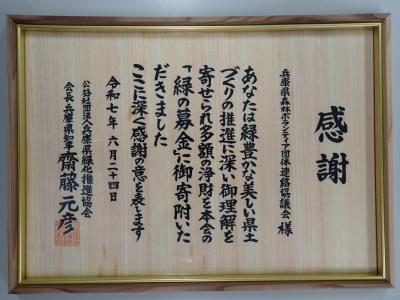 感謝
兵庫県森林ボランティア団体連絡協議会 様
あなたは緑豊かな美しい県土
づくりの推進に深い御理解を
寄せられ多額の浄財を本会の
「緑の募金」に御寄附いた
だきました
ここに深く感謝の意を表します
令和七年 六月二十四日
公益社団法人兵庫県緑化推進協会
会長 兵庫県知事 齋藤元彦